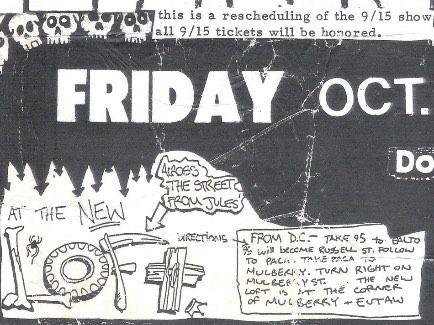 this is a rescheduling of the 9/15 show
all 9/15 tickets will be honored.
FRIDAY OCT.
Do
ACROSS
THE STREET
FROM JULES'
AT THE NEW
LOFT
DIRECTIONS
FROM D.C. - TAKE 95 to BALTO
95 will BECOME RUSSELL ST. FOLLOW
TO PACA. TAKE PACA TO
MULBERRY. TURN RIGHT ON
MULBERRY ST. THE NEW
LOFT IS AT THE CORNER
OF MULBERRY + EUTAW